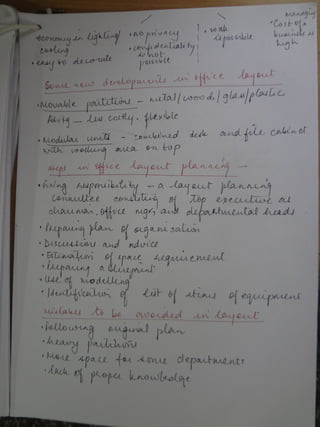 managing
economy in lighting/ • no privacy • work • Cost of a
cooling • confidentiality is possible business is
• easy to decorate is not possible high
Some new developments in office layout
• Movable partitions - metal/wood/glass/plastic
Advtg - less costly, flexible
• Modular units - combined desk and file cabinet
with working area on top
steps in office layout planning -
• fixing responsibility - a layout planning
committee consisting of top executive as
chairman, office mgr, and departmental heads
• Preparing plan of organisation
• Discussions and advice
• Estimation of space requirement
• Preparing a blueprint
• Use of modelling
• Identification of list of items of equipment
mistakes to be avoided in layout
• Following original plan
• heavy partitions
• More space for some departments
• lack of proper knowledge